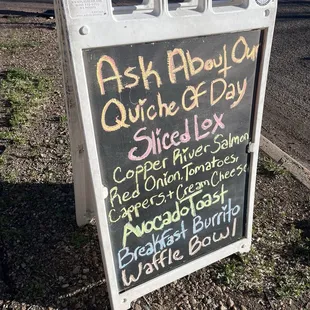 Ask About Our
Quiche Of Day
Sliced Lox
Copper River Salmon
Red Onion, Tomatoes,
Cappers, + Cream Cheese
Avocado Toast
Breakfast Burrito
Waffle Bowl